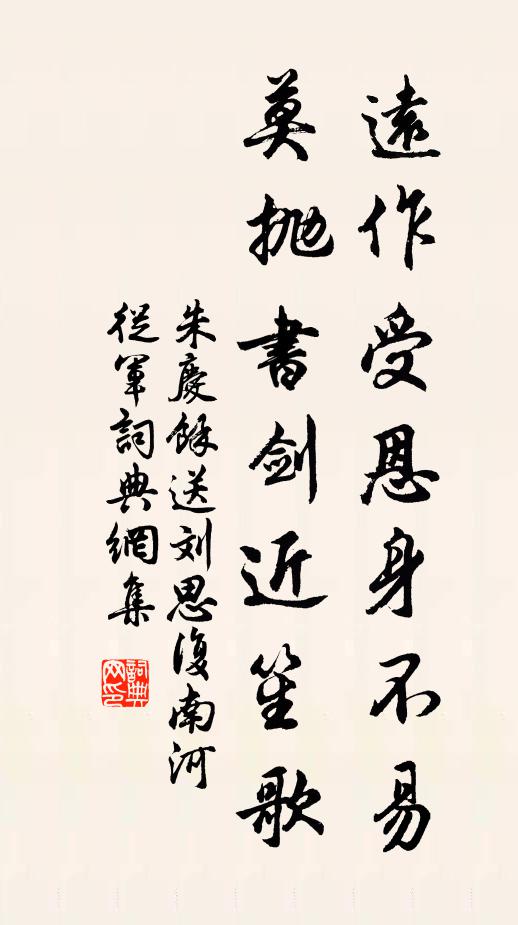 遠作受恩身不易
莫拋書劍近笙歌
朱慶餘送刘思復南河
從軍詞典網集
詞典网印